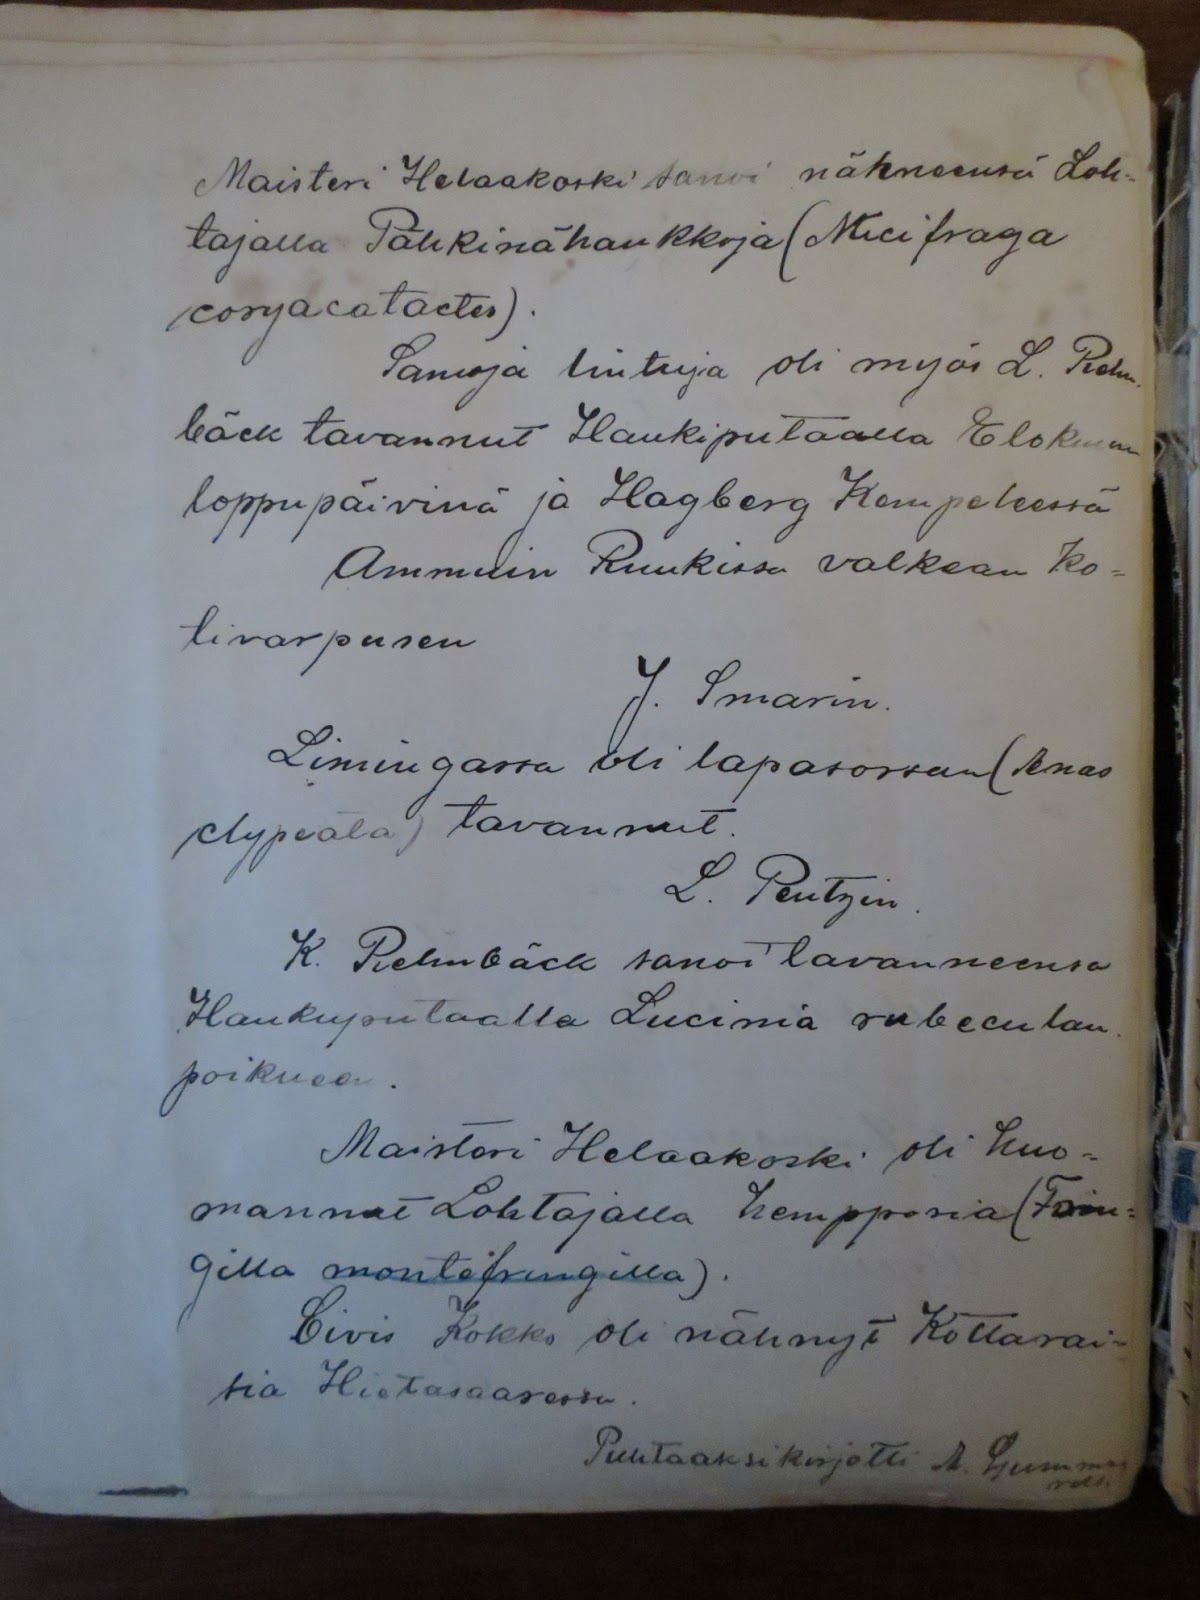 Maisteri Helaakoski sanoi nähneensä Loh-
tajalla Pähkinähaukkoja (Nucifraga
coryacatactes).
Samoja lintuja oli myös L. Rehn-
bäck tavannut Haukiputaalla Elokuun
loppupäivinä ja Hagberg Kempeleessä
Ammuin Ruukissa valkean ko-
tivarpusen
J. Smarin.
Limingassa oli lapasorsan (Anas
clypeata) tavannut.
L. Pentzin.
K. Rehnbäck sanoi tavanneensa
Haukiputaalla Lucinia rubeculan
poikueen.
Maisteri Helaakoski oli huo-
mannut Lohtajalla hempposia (Frin-
gilla montefringilla).
Civis Kokko oli nähnyt Kottarai-
sia Hietasaaressa.
Puhtaaksikirjotti A.